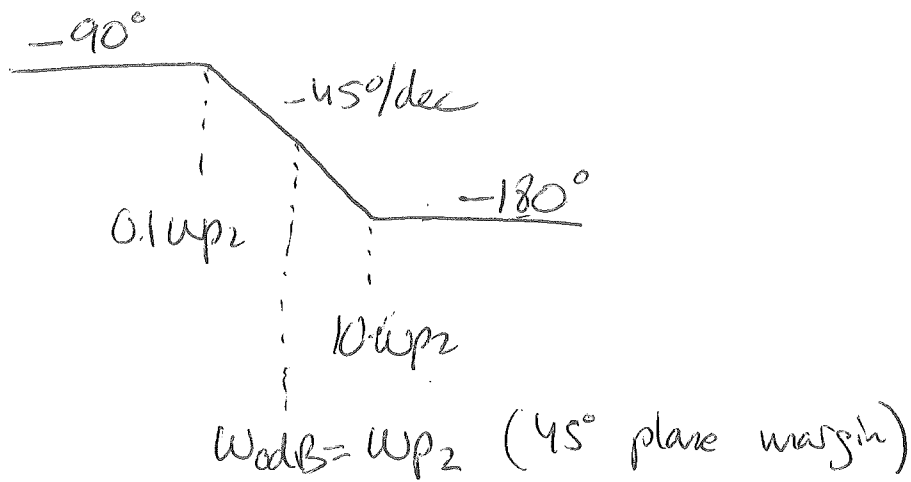 -90°
-45°/dec
-180°
0.1ωp2
10·ωp2
ω0dB = ωp2 (45° phase margin)